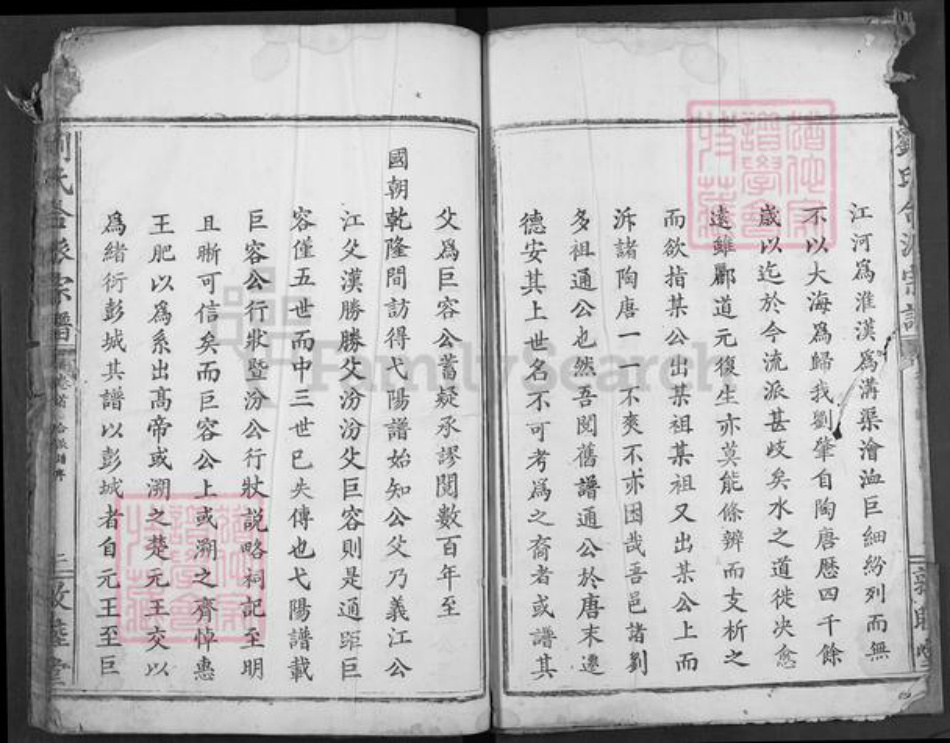 江河爲淮漢爲溝渠澮洫巨細紛列而無
不以大海爲歸我劉肇自陶唐歴四千餘
歲以迄於今流派甚歧矣水之道徙决愈
遠雖酈道元復生亦莫能條辨而支析之
而欲指某公出某祖某祖又出某公上而
泝諸陶唐一一不爽不亦困哉吾邑諸劉
多祖通公也然吾閱舊譜通公於唐末遷
德安其上世名不可考爲之裔者或譜其
父爲巨容公蓄疑承謬閱數百年至
國朝乾隆間訪得弋陽譜始知公父乃義江公
江父漢勝勝父汾汾父巨容則是通距巨
容僅五世而中三世已失傳也弋陽譜載
巨容公行狀暨汾公行狀説略祠記至明
且晰可信矣而巨容公上或溯之齊悼惠
王肥以爲系出高帝或溯之楚元王交以
爲緒衍彭城其譜以彭城者自元王至巨
劉氏合派宗譜
敦睦堂
FamilySearch